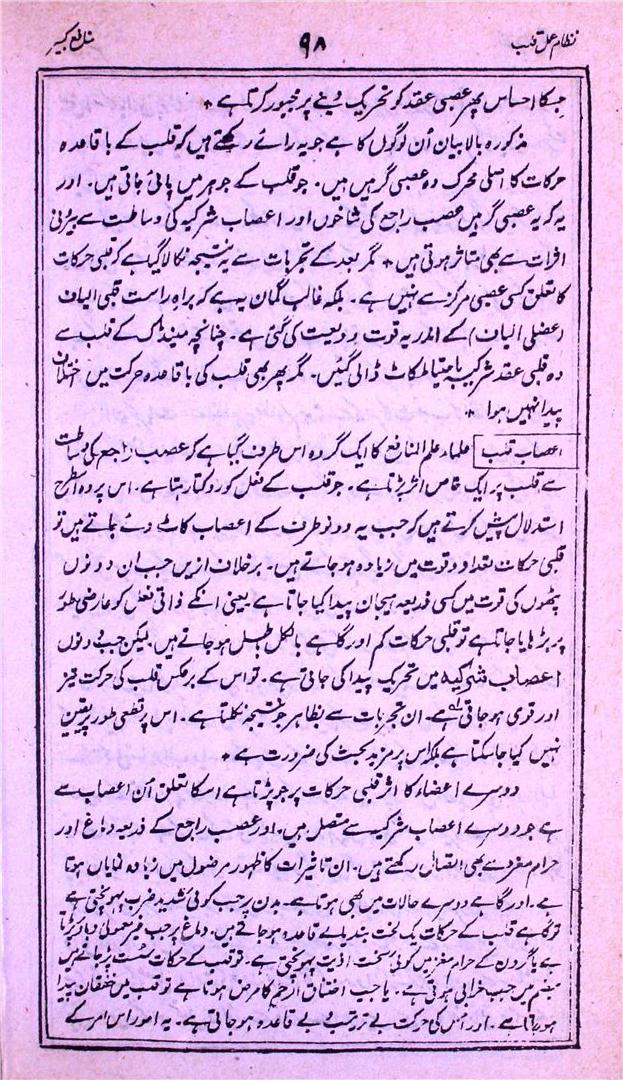 نظام عمل قلب ۹۸ منافع کبیر
جسکا احساس پھر عصبی عقد کو تحریک دینے پر مجبور کرتا ہے +
مذکورہ بالا بیان اُن لوگوں کا ہے جو یہ رائے رکھتے ہیں کہ قلب کے باقاعدہ
حرکات کا اصلی محرک وہ عصبی گرہیں ہیں۔ جو قلب کے جوہر میں پائی جاتی ہیں۔ اور
یہ کہ یہ عصبی گرہیں عصب راجع کی شاخوں اور اعصاب شرکیہ کی وساطت سے بیرونی
اثرات سے بھی متاثر ہوتی ہیں + مگر بعد کے تجربات سے یہ نتیجہ نکالا گیا ہے کہ قلبی حرکات
کا تعلق کسی عصبی مرکز سے نہیں ہے۔ بلکہ غالب گمان یہ ہے کہ براہِ راست قلبی الیاف
(عضلی الیاف) کے اندر یہ قوت ودیعت کی گئی ہے۔ چنانچہ مینڈک کے قلب سے
وہ قلبی عقد شرکیہ بااحتیاط کاٹ ڈالی گئیں۔ مگر پھر بھی قلب کی باقاعدہ حرکت میں اختلال
پیدا نہیں ہوا +
اعصاب قلب علماء علم المنافع کا ایک گروہ اس طرف گیا ہے کہ عصب راجع کی وساطت
سے قلب پر ایک خاص اثر پڑتا ہے۔ جو قلب کے فعل کو روکتا رہتا ہے۔ اس پر وہ اسطرح
استدلال پیش کرتے ہیں کہ جب یہ دونو طرف کے اعصاب کاٹ دئے جاتے ہیں تو
قلبی حرکات تعداد و قوت میں زیادہ ہو جاتے ہیں۔ برخلاف ازیں جب ان دونوں
پٹھوں کی قوت میں کسی ذریعہ ہیجان پیدا کیا جاتا ہے یعنی انکے ذاتی فعل کو عارضی طور
پر بڑھایا جاتا ہے تو قلبی حرکات کم اور گاہے بالکل باطل ہو جاتے ہیں لیکن جب دونوں
اعصاب شرکیہ میں تحریک پیدا کی جاتی ہے۔ تو اس کے برعکس قلب کی حرکت تیز
اور قوی ہو جاتی ہے۔ ان تجربات سے بظاہر جو نتیجہ نکلتا ہے۔ اس پر قطعی طور پر یقین
نہیں کیا جا سکتا ہے بلکہ اس پر مزید بحث کی ضرورت ہے +
دوسرے اعضاء کا اثر قلبی حرکات پر جو پڑتا ہے اسکا تعلق اُن اعصاب سے
ہے جو دوسرے اعصاب شرکیہ سے متصل ہیں۔ اور عصب راجع کے ذریعہ دماغ اور
حرام مغز سے بھی اتصال رکھتے ہیں۔ ان تاثیرات کا ظہور مرضوں میں زیادہ نمایاں ہوتا
ہے۔ اور گاہے دوسرے حالات میں بھی ہوتا ہے۔ بدن پر جب کوئی شدید ضرب پہونچتی ہے
تو گاہے قلب کے حرکات یک لخت بند یا بے قاعدہ ہو جاتے ہیں۔ دماغ پر جب غیر معمولی دباؤ پڑتا
ہے یا گردن کے حرام مغز میں کوئی سخت اذیت پہونچتی ہے۔ تو قلب کے حرکات سُست پڑ جاتے ہیں
ہضم میں جب خرابی ہوتی ہے۔ یا جب اختناق الرحم کا مرض ہوتا ہے تو قلب میں خفقان پیدا
ہو جاتا ہے۔ اور اُس کی حرکت بے ترتیب و بے قاعدہ ہو جاتی ہے۔ یہ امور اس امر کے